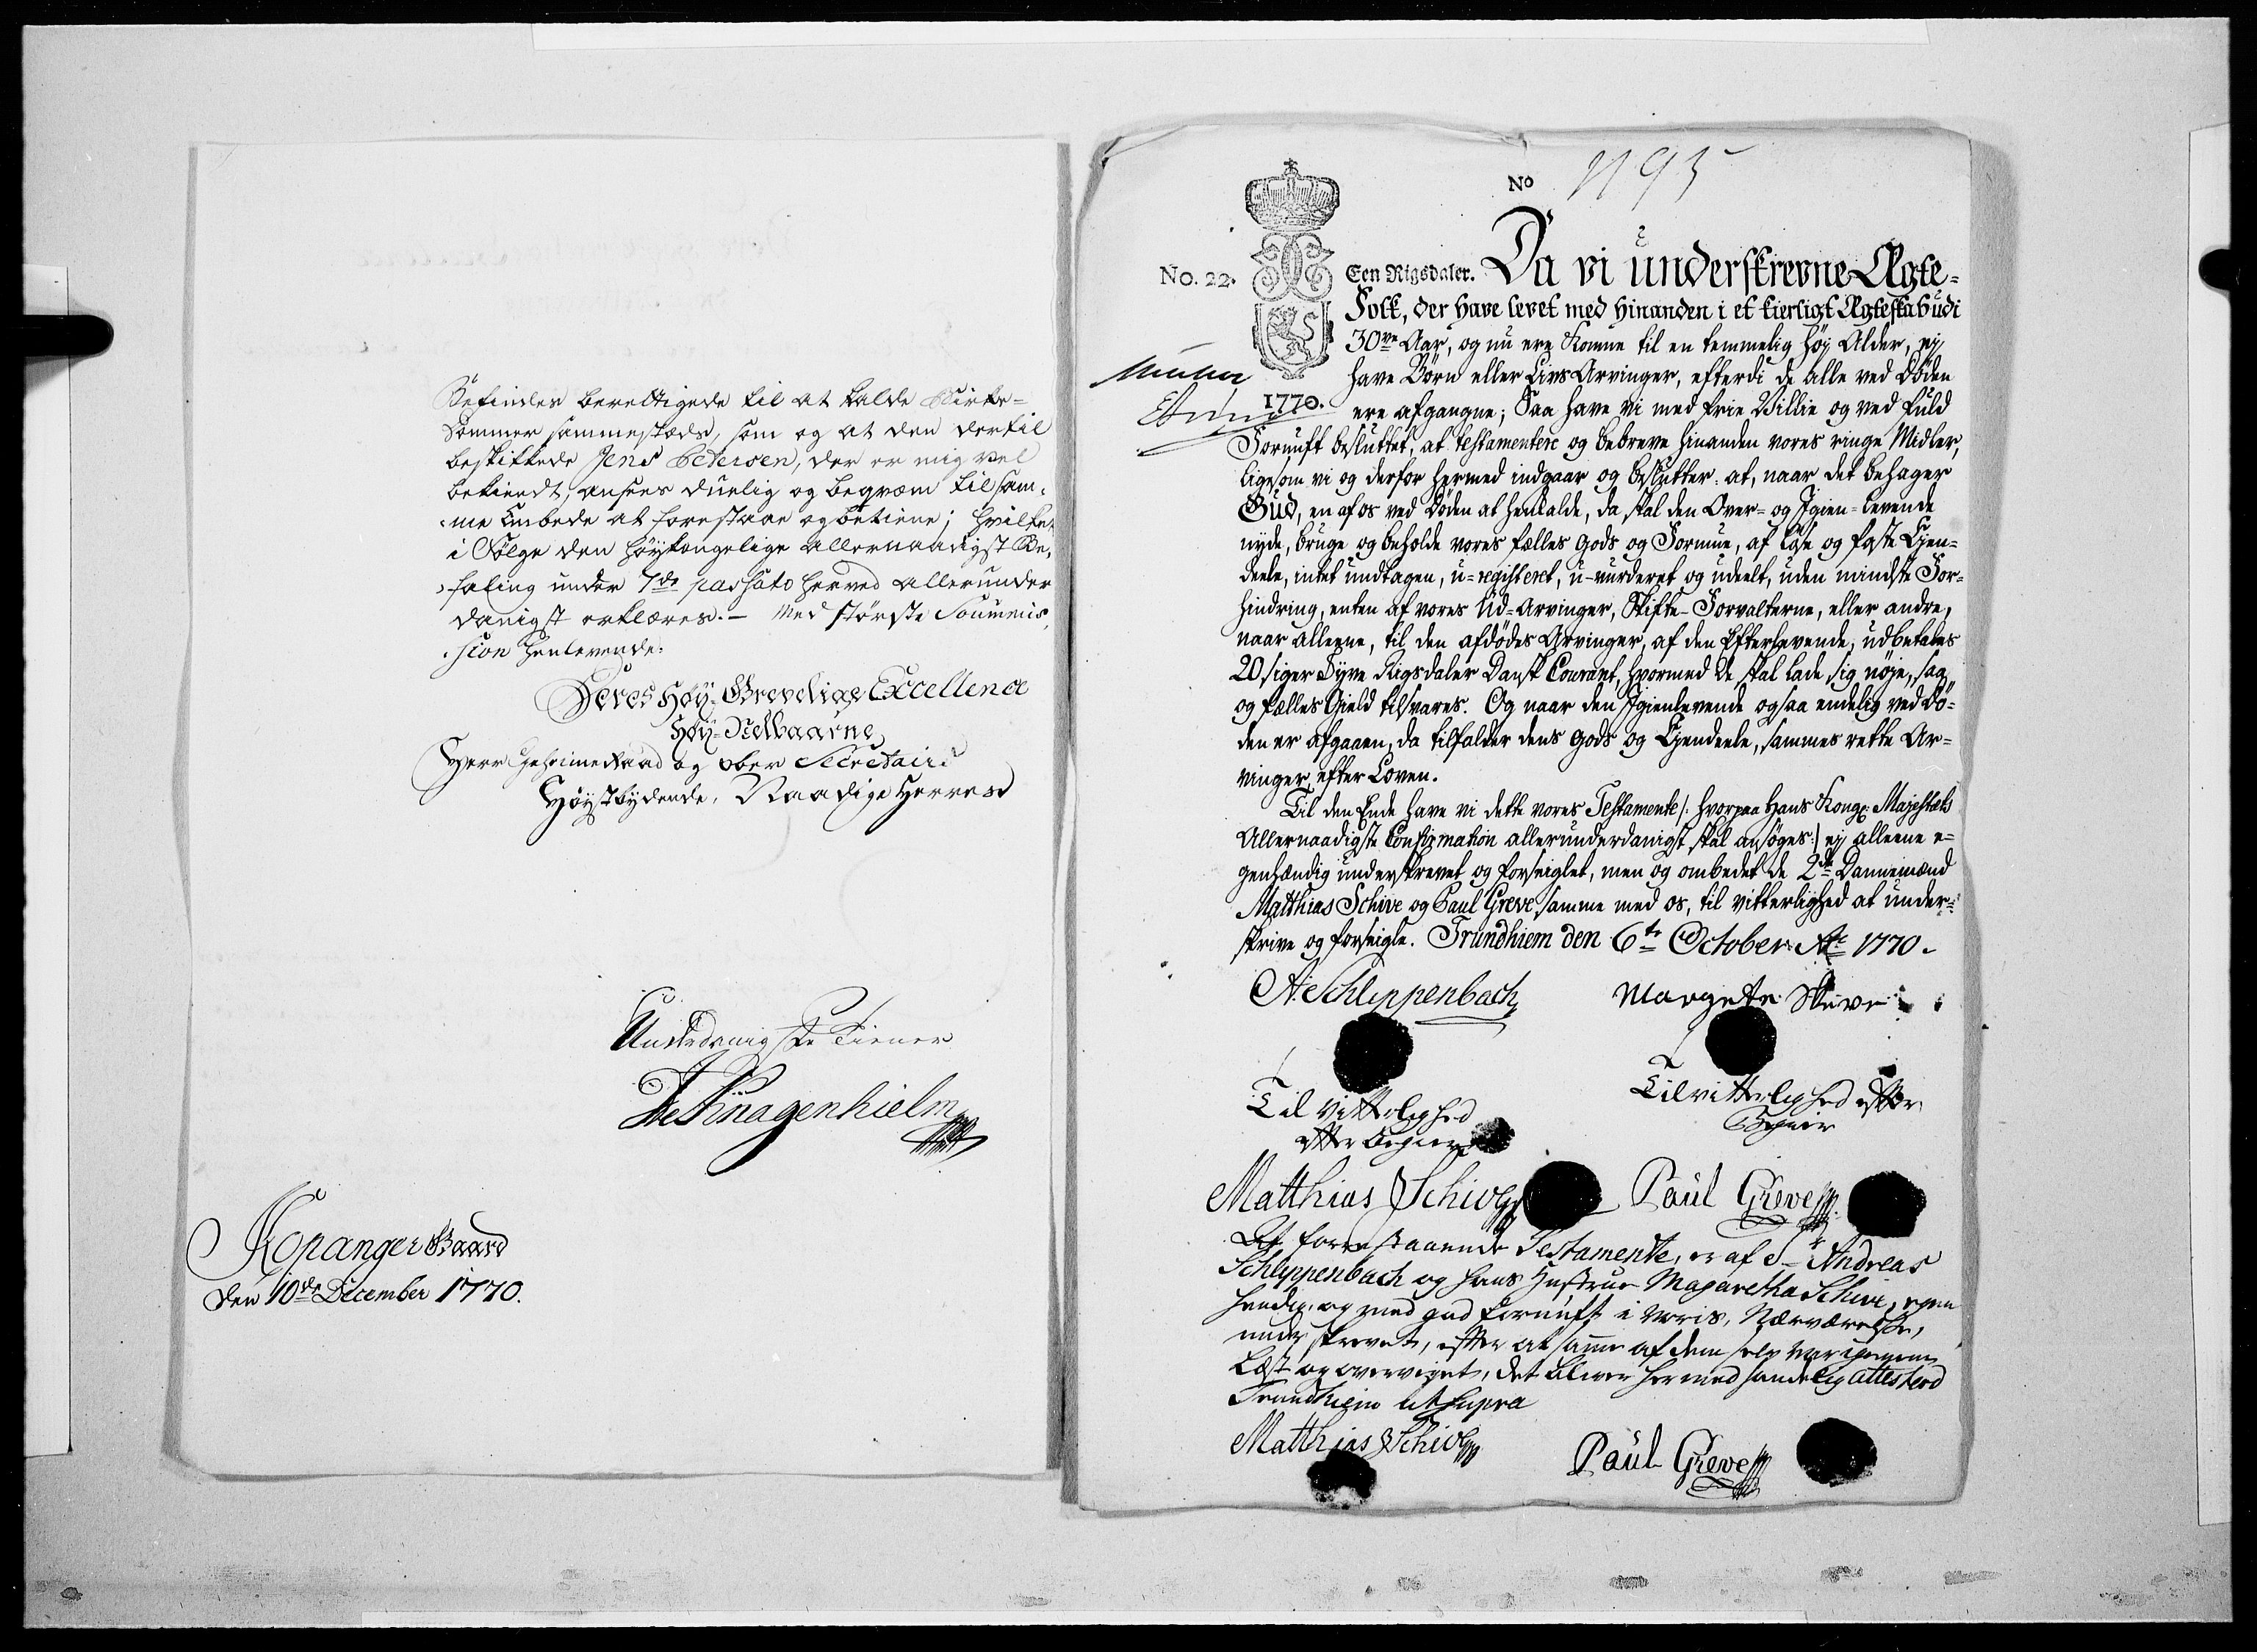 Befindes berettigede til at kalde Birke-
Dommer sammestæds, som og at den dertil
beskikkede Jens Petersen, der er mig vel
bekiendt, ansees duelig og beqvem til sam-
me Embede at forestaae og betiene; hvilket
i Følge den høykongelige allernaadigst Be-
faling under 7de passato herved allerunder
danigst erklæres. – Med største Soummis,
sion henlevende.
Deres Høy-Grevelige Excellence
Høy-Velbaarne
Herr Geheime Raad og Ober Secretaire
Høystbydende, Naadige Herres
Underdanigste Tiener
de Knagenhielm
Kopanger Gaard
den 10de December 1770.
No 1195
No. 22. Een Rigsdaler. Da vi underskrevne Ægte-
Folk, der have levet med hinanden i et kierligt Ægteskab udi
30ve Aar, og nu ere komne til en temmelig høj Alder, ej
have Børn eller Livs Arvinger, efterdi de alle ved Døden
1770. ere afgangne; Saa have vi med frie Villie og ved fuld
Fornuft besluttet, at testamentere og bebreve hinanden vores ringe Midler,
ligesom vi og derfor hermed indgaar og beslutter: at, naar det behager
Gud, en af os ved Døden at henkalde, da skal den Over- og Igien-levende
nyde, bruge og beholde vores fælles Gods og Formue, af løse og faste Ejen-
deele, intet undtagen, u-registeret, u-vurderet og udeelt, uden mindste For-
hindring, enten af vores Ud-Arvinger, Skifte-Forvalterne, eller andre,
naar alleene, til den afdødes Arvinger, af den Efterlevende, udbetales
20 siger Tyve Rigsdaler Dansk Courant, hvormed de skal lade sig nøje, saa
og fælles Gield tilsvares. Og naar den Igienlevende ogsaa endelig ved Dø-
den er afgaaen, da tilfalder dens Gods og Ejendeele, sammes rette Ar-
vinger efter Loven.
Til den Ende have vi dette vores Testamente /: hvorpaa Hans Kongl: Majestæts
Allernaadigste Confirmation allerunderdanigst skal ansøges :/ ej alleene e-
genhændig underskrevet og forseiglet, men og ombedet de 2de Dannemænd
Matthias Schive og Paul Greve samme med os, til vitterlighed at under-
skrive og forseigle. Trundhiem den 6te October Ao 1770.
A: Schlippenbach Margete Skive
Til Vitterlighed Til vitterlighed efter
efter Begier Begier
Matthias Schive Paul Greve
At foranstaaende Testamente, er af Sr Andreas
Schlippenbach og hans Hustrue Magaretha Schive, egen
hendig, og med god fornuft i voris Nærværelse,
under skrevet, efter at samme af dem selv var igiennem
Læst og overveyet, det bliver hermed sandelig attestered
Trundhiem ut supra
Matthias Schive Paul Greve